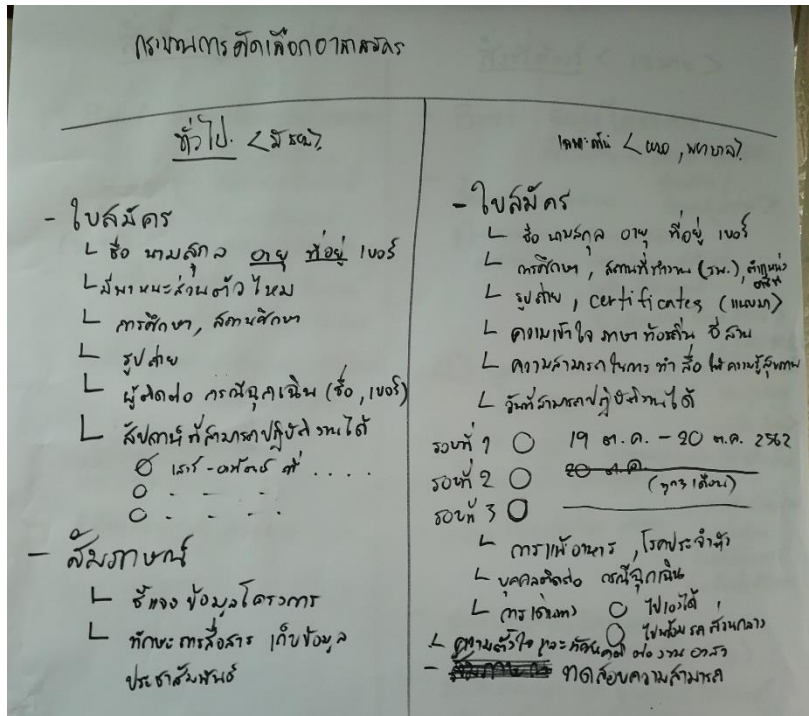 กระบวนการคัดเลือกอาสาสมัคร
ทั่วไป.
- ใบสมัคร
ชื่อ นามสกุล อายุ ที่อยู่ เบอร์
มีพาหนะส่วนตัวไหม
การศึกษา, สถานศึกษา
รูปถ่าย
ผู้ติดต่อ กรณีฉุกเฉิน (ชื่อ, เบอร์)
สัปดาห์ที่สามารถปฏิบัติงานได้
เสาร์ - อาทิตย์ ที่ . . . .
- สัมภาษณ์
ชี้แจง ข้อมูลโครงการ
ทักษะการสื่อสาร เก็บข้อมูล
ประชาสัมพันธ์
< หมอ, พยาบาล >
- ใบสมัคร
ชื่อ นามสกุล อายุ ที่อยู่ เบอร์
การศึกษา, สถานที่ทำงาน (รพ.), ตำแหน่ง
รูปถ่าย, certificates (แนบมา)
ความเข้าใจ ภาษาท้องถิ่น อีสาน
ความสามารถในการ ทำ สื่อ ให้ความรู้สุขภาพ
วันที่สามารถปฏิบัติงานได้
รอบที่ 1 19 ต.ค. - 20 ต.ค. 2562
รอบที่ 2 20 ต.ค. (ทุก 3 เดือน)
รอบที่ 3
การแพ้อาหาร, โรคประจำตัว
บุคคลติดต่อ กรณีฉุกเฉิน
การเดินทาง ไปเองได้
ไปพร้อมรถส่วนกลาง
ความตั้งใจ และทัศนคติ ต่องานอาสา
- ทดสอบความสามารถ